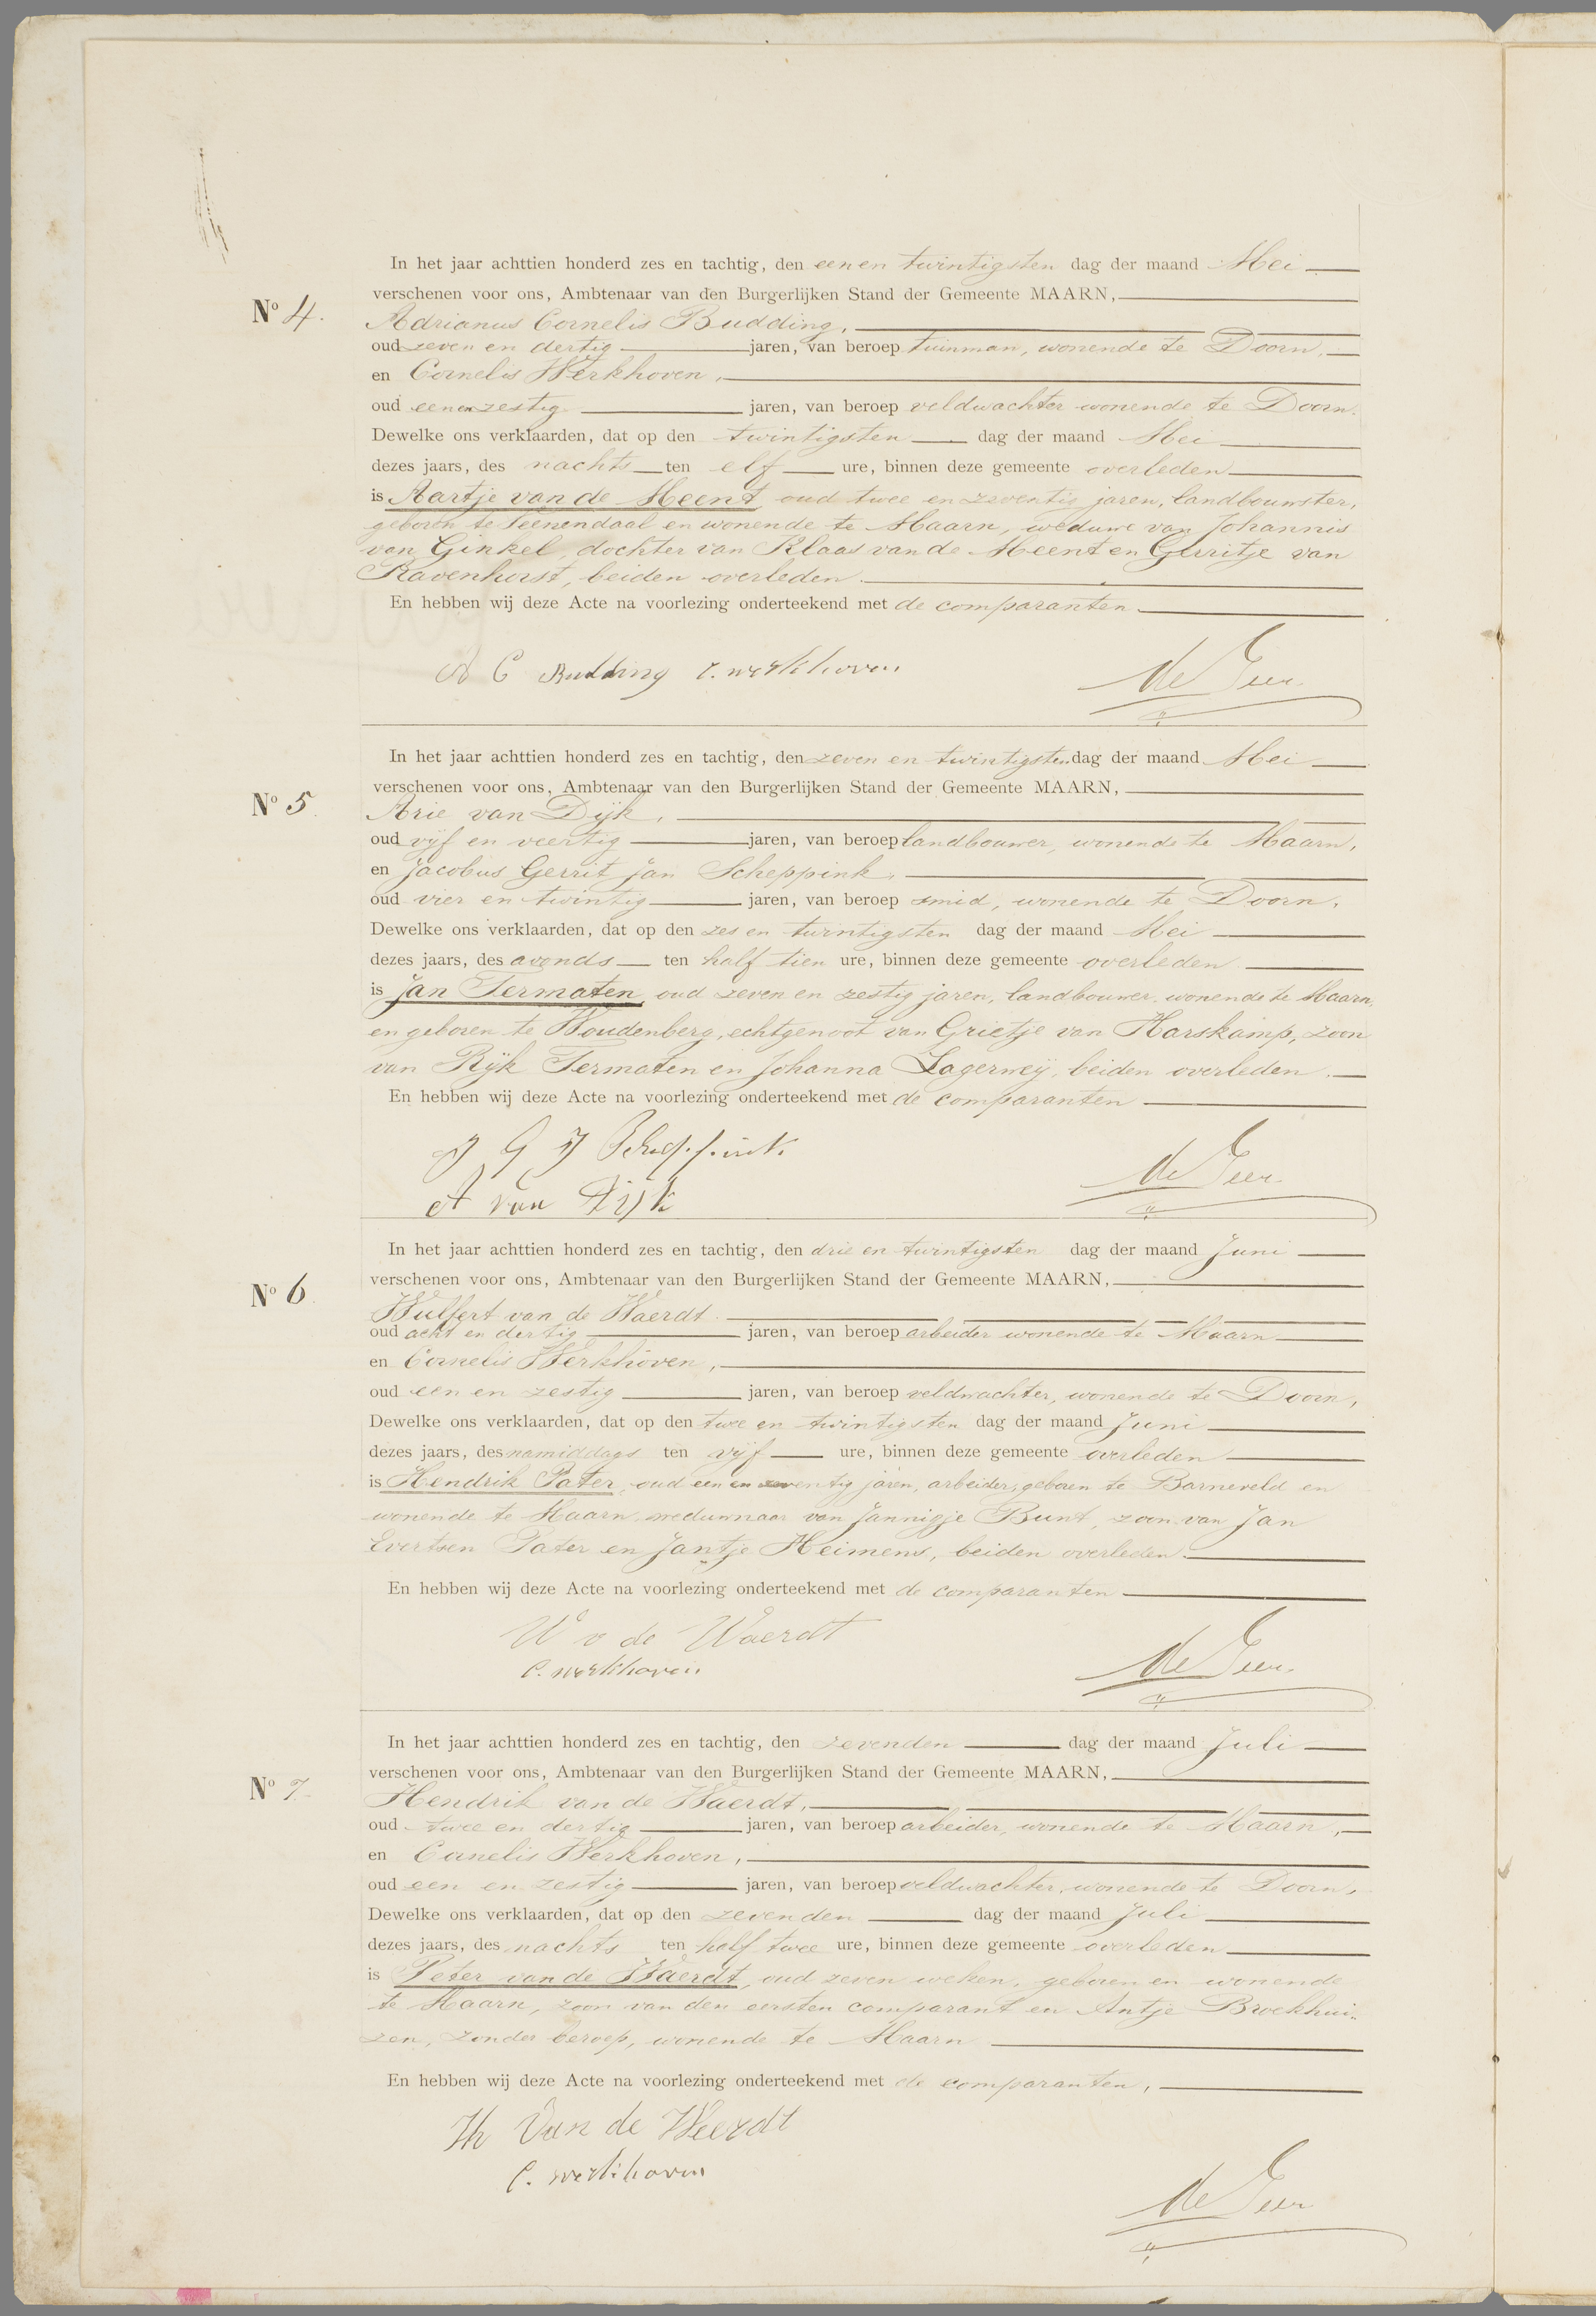 In het jaar achttien honderd zes en tachtig, den eenen twintigsten dag der maand Mei
verschenen voor ons, Ambtenaar van den Burgerlijken Stand der Gemeente MAARN,
No 4.
Adrianus Cornelis Budding,
oud zeven en dertig jaren, van beroep tuinman, wonende te Doorn,
en Cornelis Werkhoven,
oud eenenzestig jaren, van beroep veldwachter wonende te Doorn.
Dewelke ons verklaarden, dat op den twintigsten dag der maand Mei
dezes jaars, des nachts ten elf ure, binnen deze gemeente overleden
is Aartje van de Meent, oud twee en zeventig jaren, landbouwster,
geboren te Veenendaal en wonende te Maarn, weduwe van Johannis
van Ginkel, dochter van Klaas van de Meent en Gerritje van
Ravenhorst, beiden overleden.
En hebben wij deze Acte na voorlezing onderteekend met de comparanten.
A C Budding C. werkhoven
de Geer
In het jaar achttien honderd zes en tachtig, den zeven en twintigsten dag der maand Mei
verschenen voor ons, Ambtenaar van den Burgerlijken Stand der Gemeente MAARN,
No 5.
Arie van Dijk,
oud vijf en veertig jaren, van beroep landbouwer, wonende te Maarn,
en Jacobus Gerrit Jan Scheppink,
oud vier en twintig jaren, van beroep smid, wonende te Doorn.
Dewelke ons verklaarden, dat op den zes en twintigsten dag der maand Mei
dezes jaars, des avonds ten half tien ure, binnen deze gemeente overleden
is Jan Termaten, oud zeven en zestig jaren, landbouwer, wonende te Maarn,
en geboren te Woudenberg, echtgenoot van Grietje van Harskamp, zoon
van Rijk Termaten en Johanna Lagerweij, beiden overleden.
En hebben wij deze Acte na voorlezing onderteekend met de comparanten
J G J Scheppink
A van Dijk
de Geer
In het jaar achttien honderd zes en tachtig, den drie en twintigsten dag der maand Juni
verschenen voor ons, Ambtenaar van den Burgerlijken Stand der Gemeente MAARN,
No 6.
Wulfert van de Waerdt
oud acht en dertig jaren, van beroep arbeider wonende te Maarn
en Cornelis Werkhoven,
oud een en zestig jaren, van beroep veldwachter, wonende te Doorn,
Dewelke ons verklaarden, dat op den twee en twintigsten dag der maand Juni
dezes jaars, des namiddags ten vijf ure, binnen deze gemeente overleden
is Hendrik Pater, oud een en zeventig jaren, arbeider, geboren te Barneveld en
wonende te Maarn, weduwnaar van Jannigje Bunt, zoon van Jan
Evertsen Pater en Jantje Heimens, beiden overleden.
En hebben wij deze Acte na voorlezing onderteekend met de comparanten
W v de Waerdt
C. werkhoven
de Geer
In het jaar achttien honderd zes en tachtig, den zevenden dag der maand Juli
verschenen voor ons, Ambtenaar van den Burgerlijken Stand der Gemeente MAARN,
No 7.
Hendrik van de Waerdt,
oud twee en dertig jaren, van beroep arbeider, wonende te Maarn,
en Cornelis Werkhoven,
oud een en zestig jaren, van beroep veldwachter, wonende te Doorn,
Dewelke ons verklaarden, dat op den zevenden dag der maand Juli
dezes jaars, des nachts ten half twee ure, binnen deze gemeente overleden
is Peter van de Waerdt, oud zeven weken, geboren en wonende
te Maarn, zoon van den eersten comparant en Antje Broekhui-
zen, zonder beroep, wonende te Maarn
En hebben wij deze Acte na voorlezing onderteekend met de comparanten,
H Van de Weerdt
C. werkhoven
de Geer